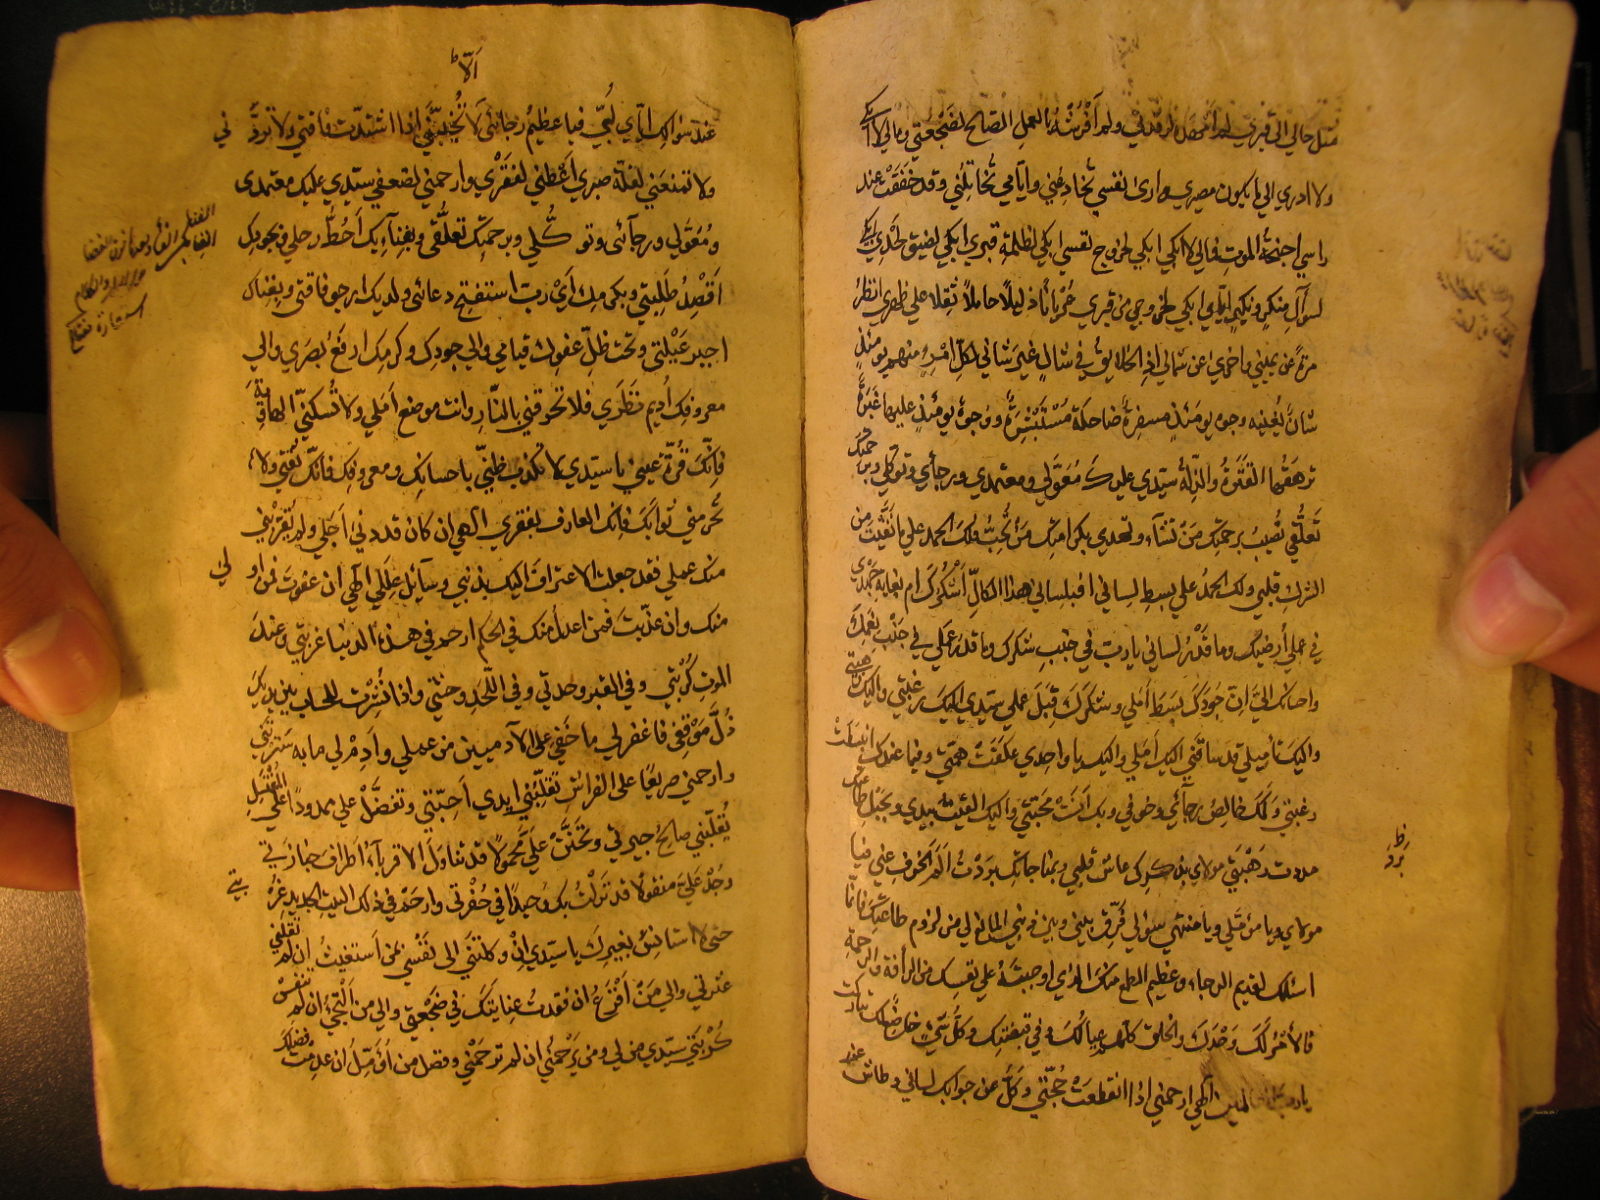 مثل حالي الى قبري لم امهده لرقدتي ولم أفرشه بالعمل الصالح لضجعتي ومالي لا ابكي
ولا ادري الى ما يكون مصيري وارى نفسي تخادعني وايامي تخاتلني وقد خفقت عند
راسي اجنحة الموت فمالي لا ابكي ابكي لخروج نفسي ابكي لظلمة قبري ابكي لضيق لحدي ابكي
لسؤال منكر ونكير اياي ابكي لخروجي من قبري عريانا ذليلا حاملا ثقلا على ظهري انظر
مرة عن يميني واخرى عن شمالي اذ الخلايق في شان غير شاني لكل امرئ منهم يومئذ
شان يغنيه وجوه يومئذ مسفرة ضاحكة مستبشرة ووجوه يومئذ عليها غبرة
ترهقها القترة والذلة سيدي عليك معولي ومعتمدي ورجائي وتوكلي وبرحمتك
تعلقي تصيب برحمتك من تشاء وتهدي بكرامتك من تحب فلك الحمد على ما نقيت من
الشرك قلبي ولك الحمد على بسط لساني افبلساني هذا الكال أشكرك ام بغاية جهدي
في عملي أرضيك وما قدر لساني يا رب في جنب شكرك وما قدر عملي في جنب نعمك
واحسانك الي ان جودك بسط أملي وشكرك قبل عملي سيدي اليك رغبتي واليك رهبتي
واليك تأميلي قد ساقني اليك أملي واليك يا واحدي علقت همتي وفيما عندك انبسطت
رغبتي ولك خالص رجائي وخوفي وبك انست محبتي واليك القيت بيدي وبحبل طاعتك
مددت رهبتي مولاي بذكرك عاش قلبي وبمناجاتك بردت ألم الخوف عني فيا
برد ظ
مولاي ويا مؤملي ويا منتهى سؤلي فرق بيني وبين ذنبي المانع لي من لزوم طاعتك فانما
اسئلك لقديم الرجاء وعظيم الطمع منك الذي اوجبته على نفسك من الرأفة والرحمة
فالأمر لك وحدك والخلق كلهم عيالك وفي قبضتك وكل شيء خاضع لك تباركت
يا رب العالمين الهي ارحمني اذا انقطعت حجتي وكل عن جوابك لساني وطاش
عند سؤالك اياي لبي فيا عظيم رجائي لا تخيبني اذا اشتدت فاقتي ولا تردني
ولا تمنعني لقلة صبري اعطني لفقري وارحمني لضعفي سيدي عليك معتمدي
ومعولي ورجائي وتوكلي وبرحمتك تعلقي وبفنائك أحط رحلي وبجودك
اقصد طلبتي وبكرمك أي رب استفتح دعائي ولديك ارجو فاقتي وبغناك
اجبر عيلتي وتحت ظل عفوك قيامي والى جودك وكرمك ارفع بصري والى
معروفك أديم نظري فلا تحرقني بالنار وانت موضع أملي ولا تسكني الهاوية
فانك قرة عيني يا سيدي لا تكذب ظني باحسانك ومعروفك فانك ثقتي ولا
تحرمني ثوابك فانك العارف بفقري الهي ان كان قد دنى أجلي ولم يقربني
منك عملي فقد جعلت الاعتراف اليك بذنبي وسائل عللي الهي ان عفوت فمن اولى
منك وان عذبت فمن اعدل منك في الحكم ارحم في هذه الدنيا غربتي وعند
الموت كربتي وفي القبر وحدتي وفي اللحد وحشتي واذا نشرت للحساب بين يديك
ذل موقفي فاغفر لي ما خفي على الآدميين من عملي وأدم لي ما به سترتني
وارحمني صريعا على الفراش تقلبني ايدي احبتي وتفضل علي ممدودا على المغتسل
يقلبني صالح جيرتي وتحنن علي محمولا قد تناول الاقرباء اطراف جنازتي
وجد علي منقولا قد نزلت بك وحيدا في حفرتي وارحم في ذلك البيت الجديد غربتي
حتى لا استأنس بغيرك يا سيدي ان وكلتني الى نفسي فمن استغيث ان لم تقلني
عثرتي والى من أفزع ان فقدت عنايتك في ضجعتي والى من التجئ ان لم تنفس
كربتي سيدي من لي ومن يرحمني ان لم ترحمني وفضل من أؤمل ان عدمت فضلك